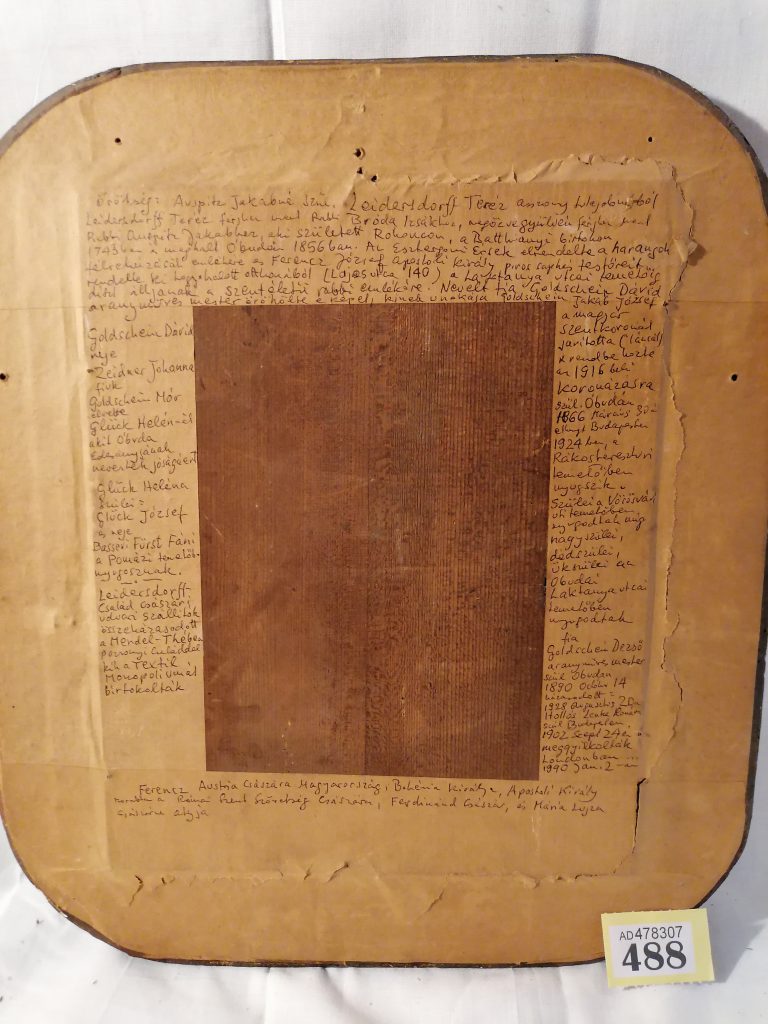 Örökség: Auspitz Jakabné Szül. Leidersdorff Teréz asszony
Leidersdorff Teréz férjhez ment Rabbi Bróda Izsákhoz, megözvegyülvén férjhez ment
Rabbi Auspitz Jakabhoz, aki született Rohoncon, a Batthványi birtokon
1743ban s meghalt Óbudán 1856ban. Az Esztergomi Érsek elrendelte a harangok
emlékére és Ferencz József Apostoli király piros testőreit
rendelte ki otthonából (Lajos utca 140) a Laktanya utcai temetőig
álljanak a Szentéletű rabbi emlékére. Nevelt fia Goldschein Dávid
aranyműves mester örökölte e képet, kinek unokája Goldschein Jakab József
Goldschein Dávid
neje
Zeidner Johanna
fiuk
Goldschein Mór
elvette
Glück Helén-t
akit Óbuda
Édesanyjának
neveztek jóságáért
Glück Heléna
szülei =
Glück József
s neje
Bassevi Fürst Fáni
a Pomázi temetőb.
nyugosznak.
Leidersdorff
Család császári
udvari szállítók
összeházasodott
a Mendel-Theben
pozsonyi családdal
kik a Textil
Monopóliumát
birtokolták
a magyar
Szentkoronát
javította
s rendbe hozta
az 1916 beli
koronázásra
szül. Óbudán
1866 Március
elhunyt Budapesten
1924 ben, a
Rákoskeresztúri
temetőben
nyugszik.
Szülei a Vörösvári
úti temetőben
nyugodtak míg
nagyszülei,
dédszülei,
ükszülei az
Óbudai
Laktanya utcai
temetőben
nyugodtak
fia
Goldschein Dezső
aranyműves mester
szül Óbudán
1890 Október 14
házasodott =
1928 Augusztus
Hollós
szül Budapesten
1902 Szept 24én
meggyilkolták
Londonban
1990 Jan. 2-án
Ferencz Austria Császára Magyarország, Bohémia Királya, Apostoli Király
a Római Szent Szövetség Császára, Ferdinánd Császár, és Mária Lujza
Császárné atyja
AD478307
488